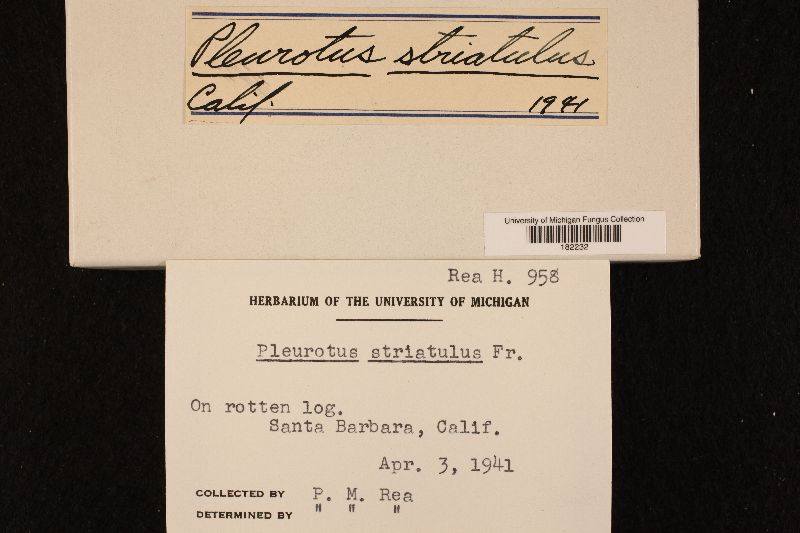 Pleurotus striatulus
Calif. 1941
University of Michigan Fungus Collection
182232
Rea H. 958
HERBARIUM OF THE UNIVERSITY OF MICHIGAN
Pleurotus striatulus Fr.
On rotten log.
Santa Barbara, Calif.
Apr. 3, 1941
COLLECTED BY P. M. Rea
DETERMINED BY " " "